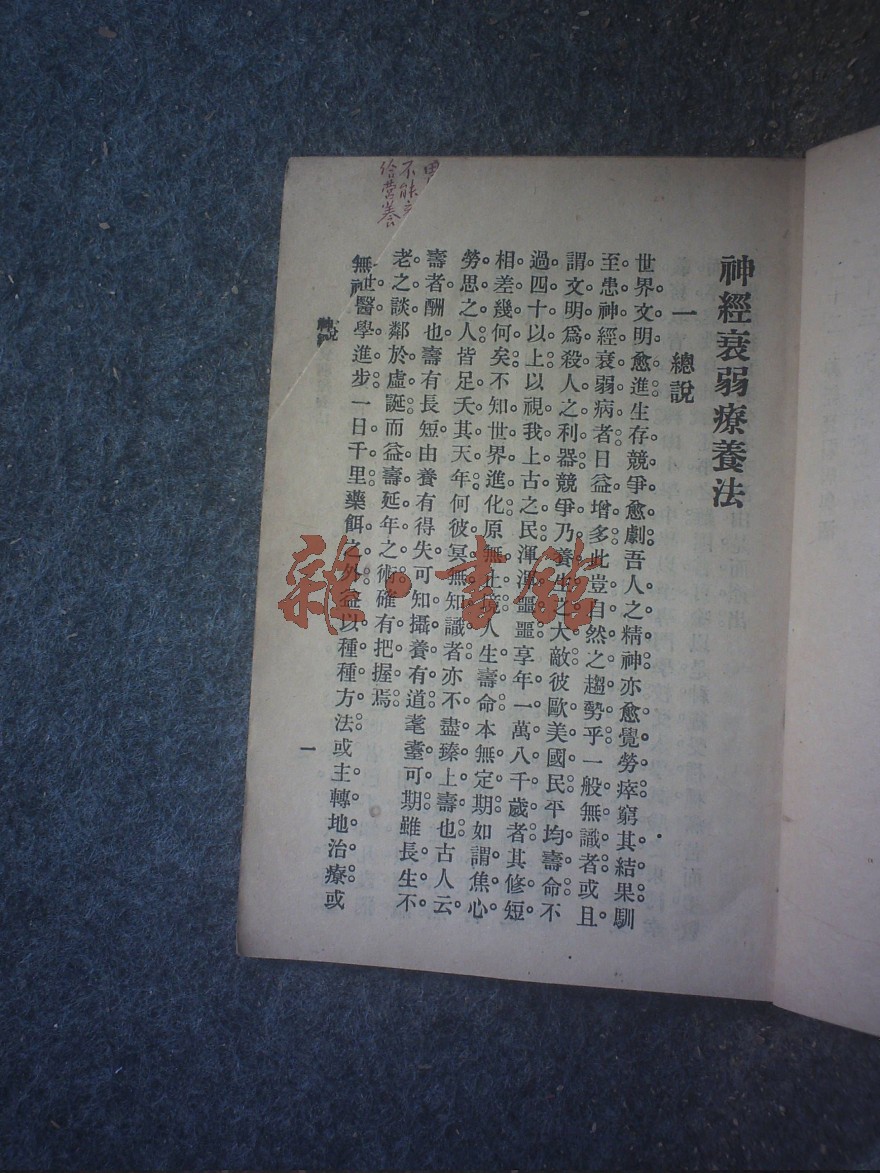 神經衰弱療養法
一 總說
世界文明愈進。生存競爭愈劇。吾人之精神亦愈覺勞瘁。窮其結果。馴
至患神經衰弱病者。日益增多。此豈自然之趨勢乎。一般無識者。或且
謂文明爲殺人之利器。競爭乃養生之大敵。彼歐美國民。平均壽命。不
過四十以上。以視我上古之民。渾渾噩噩。享年一萬八千歲者。其修短
相差幾何矣。不知世界進化。原無止境。人生壽命。本無定期。如謂焦心
勞思之人。皆足夭其天年。何彼冥無知識者。亦不盡臻上壽也。古人云
壽者酬也。壽有長短。由養有得失。可知攝養有道。耄耋可期。雖長生不
老之談。鄰於虛誕。而益壽延年之術。確有把握焉。
世醫學進步。一日千里。藥餌之外。益以種種方法。或主轉地治療。或
一
不能
給營養
雜·書館